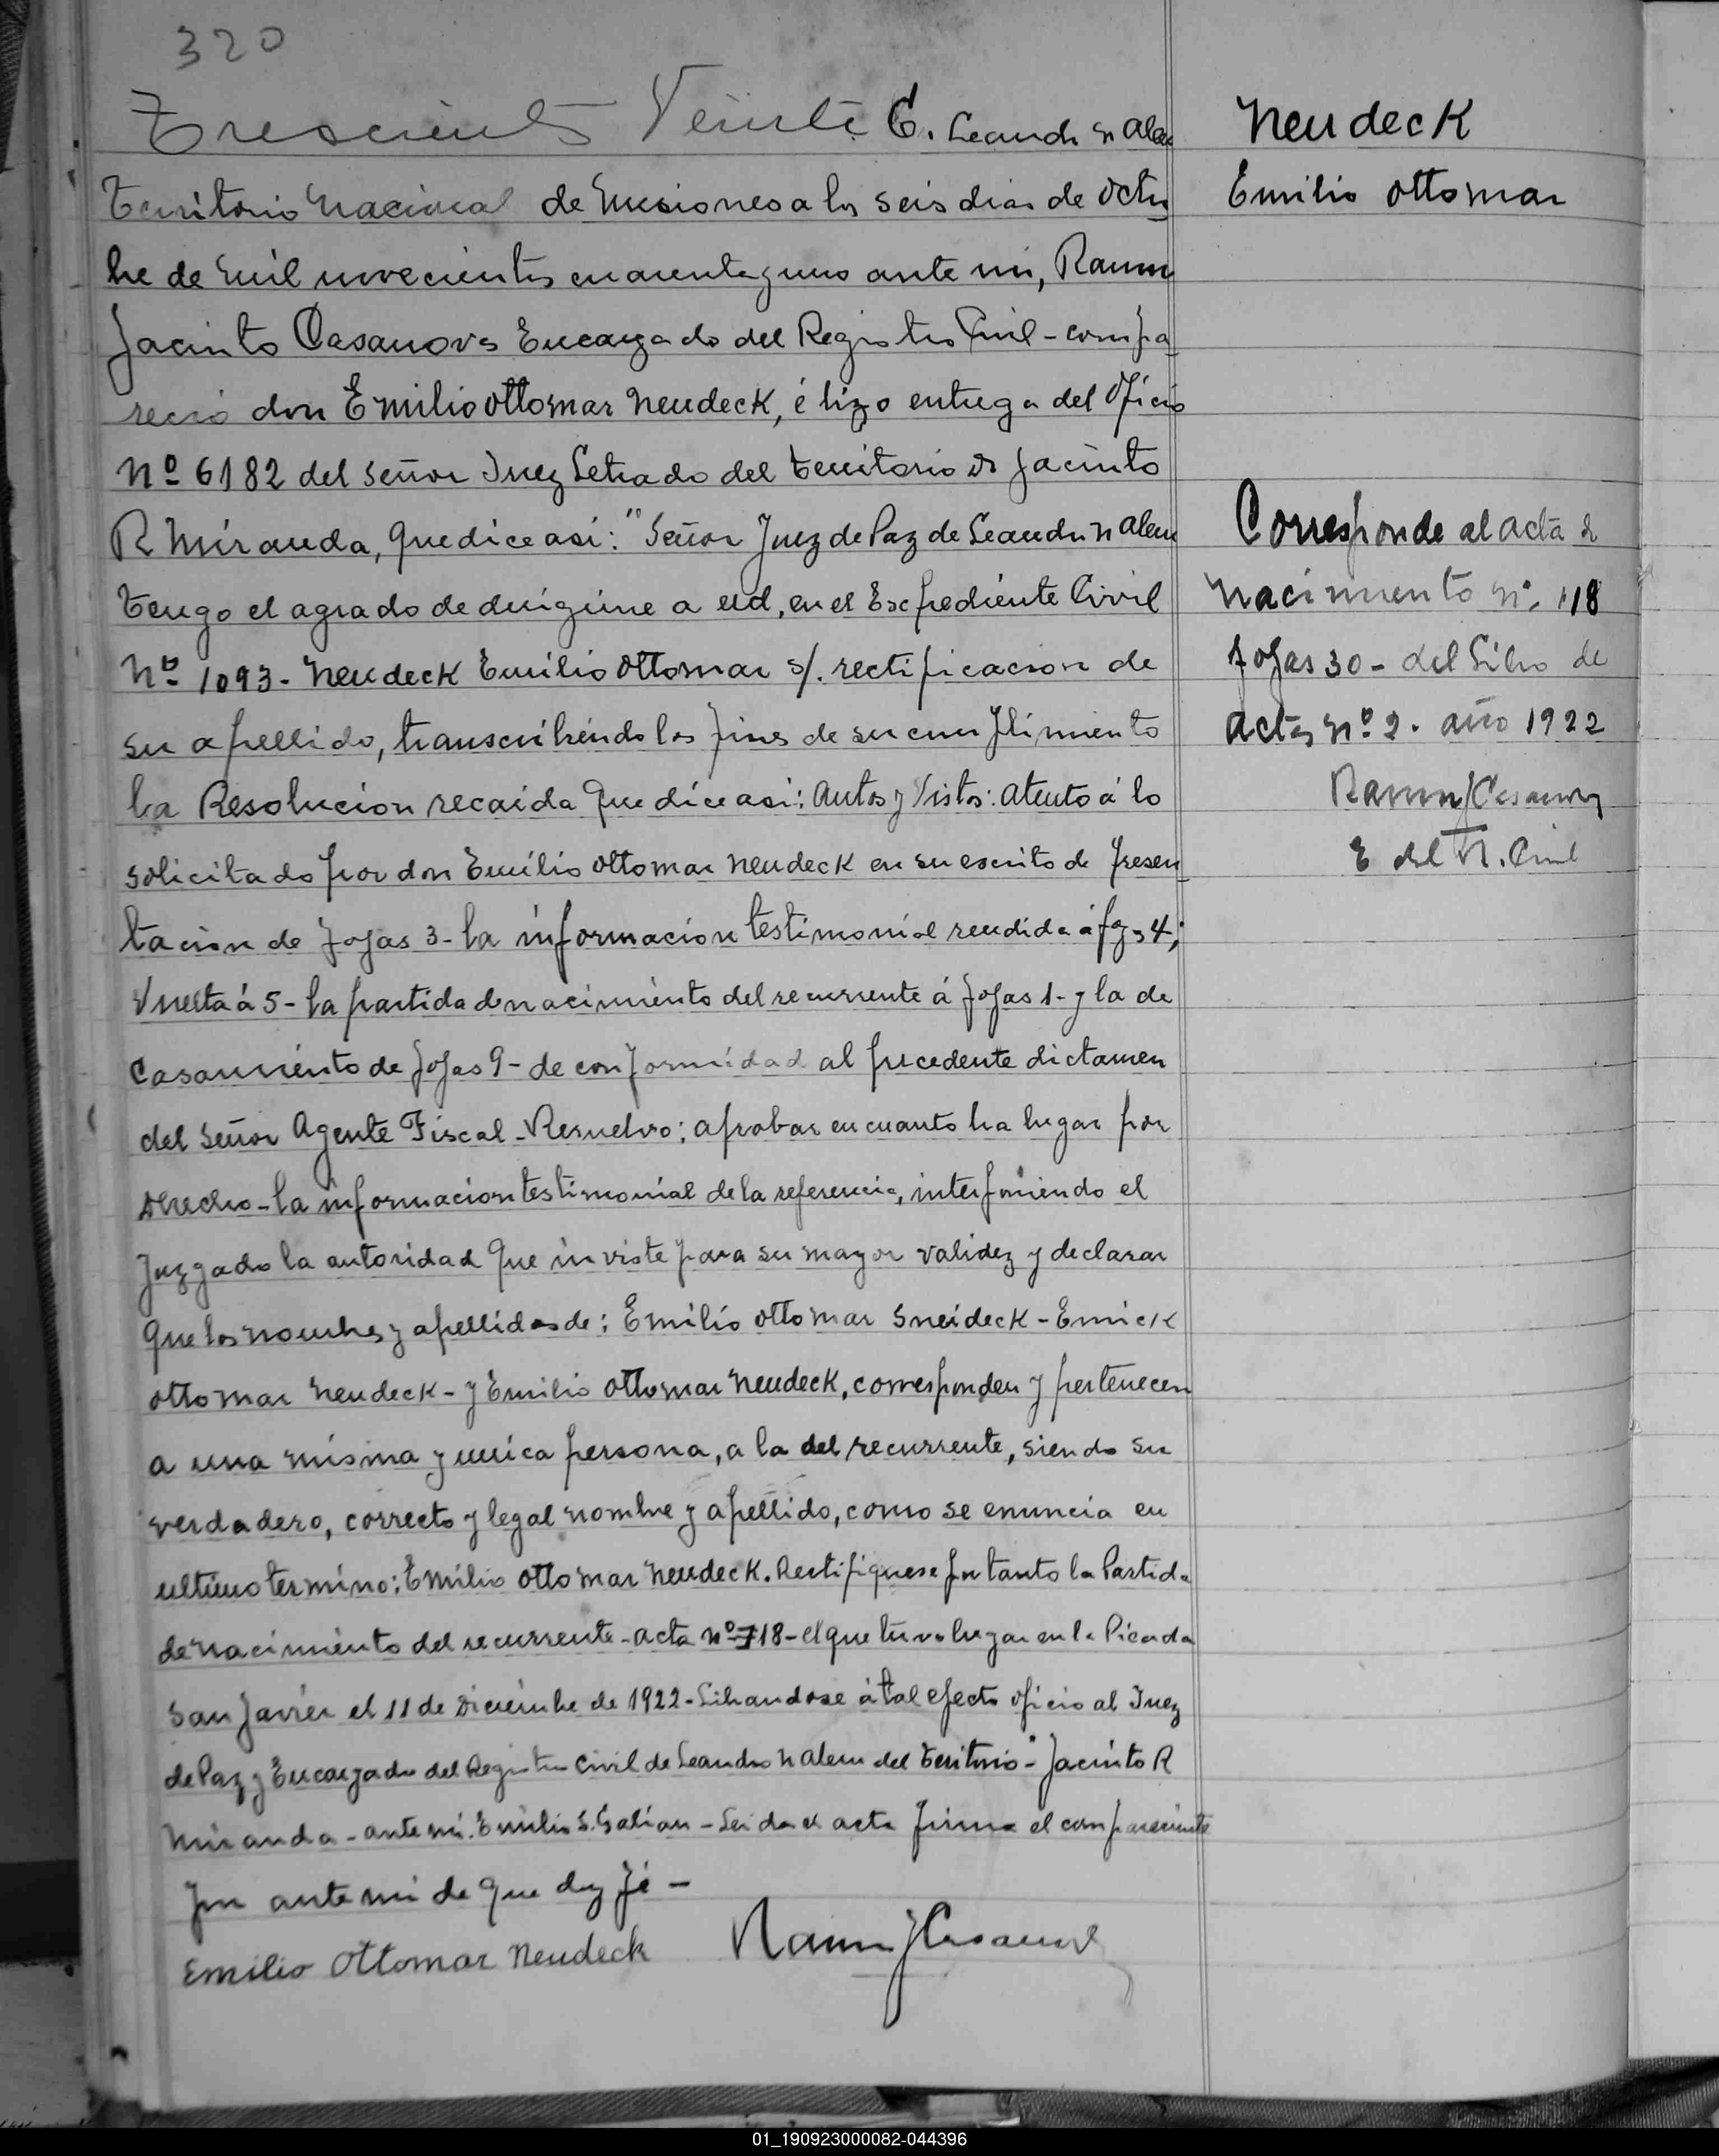 320
Trescientos Veinte E. Leandro N Alem
Territorio Nacional de Misiones a los seis dias de octu
bre de mil novecientos cuarenta y uno ante mi, Ramon
Jacinto Casanova Encargado del Registro Civil - compa
reció don Emilio Ottomar Neudeck, é hizo entrega del oficio
Nº 6182 del señor Juez Letrado del territorio Dr Jacinto
R Miranda, que dice asi: "Señor Juez de Paz de Leandro N Alem
tengo el agrado de dirigirme a ud, en el Expediente Civil
Nº 1093 - Neudeck Emilio Ottomar s/. rectificacion de
su apellido, transcribiendo los fines de su cumplimiento
la Resolucion recaida que dice asi: Autos y Vistos: Atento á lo
solicitado por don Emilio Ottomar Neudeck en su escrito de presen
tacion de fojas 3 - la informacion testimonial rendida á fojs 4;
Vuelta á 5 - la partida de nacimiento del recurrente á fojas 1 - y la de
Casamiento de fojas 9 - de conformidad al precedente dictamen
del señor Agente Fiscal - Resuelvo: aprobar en cuanto ha lugar por
Derecho - la informacion testimonial de la referencia, interponiendo el
Juzgado la autoridad que inviste para su mayor validez y declarar
que los nombres y apellidos de: Emilio Ottomar Sneideck - Emick
Ottomar Neudeck - y Emilio Ottomar Neudeck, corresponden y pertenecen
a una misma y unica persona, a la del recurrente, siendo su
verdadero, correcto y legal nombre y apellido, como se enuncia en
ultimo termino: Emilio Ottomar Neudeck. Rectifiquese por tanto la Partida
de nacimiento del recurrente - acta nº 118 - el que tuvo lugar en la Picada
San Javier el 11 de Diciembre de 1922 - Librandose á tal efecto oficio al Juez
de Paz y Encargado del Registro Civil de Leandro N Alem del territorio - " Jacinto R
Miranda - ante mi. Emilio S. Galian - Leida el acta firma el compareciente
por ante mi de que doy fé -
Emilio Ottomar Neudeck Ramon J Casanova
Neudeck
Emilio Ottomar
Corresponde al acta de
Nacimiento nº. 118
fojas 30 - del Libro de
actas nº 2. año 1922
Ramon J Casanova
E del R. Civil
01_190923000082-044396